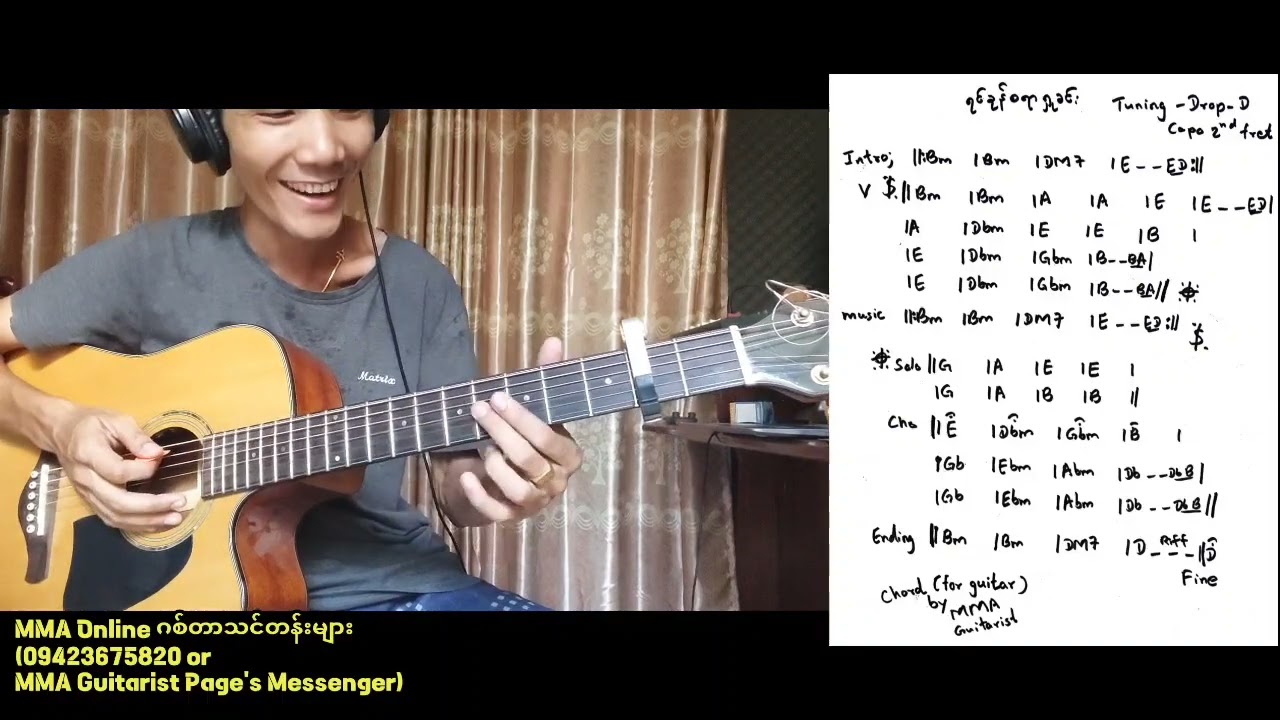 Tuning - Drop-D
Capo 2nd fret
Intro; ||:Bm |Bm |DM7 |E - - ED:||
V 𝄋 ||Bm |Bm |A |A |E |E - - ED|
|A |Dbm |E |E |B |
|E |Dbm |Gbm |B - - BA|
|E |Dbm |Gbm |B - - BA|| 𝄌
music ||:Bm |Bm |DM7 |E - - ED:||
𝄋
𝄌 Solo ||G |A |E |E |
|G |A |B |B ||
Cho ||E |Dbm |Gbm |B |
|Gb |Ebm |Abm |Db - - DbB|
|Gb |Ebm |Abm |Db - - DbB||
Ending ||Bm |Bm |DM7 |D - Riff - - ||D
Fine
Chord (for guitar)
by MMA
Guitarist
Matrix
MMA Online ဂစ်တာသင်တန်းများ
(09423675820 or
MMA Guitarist Page's Messenger)